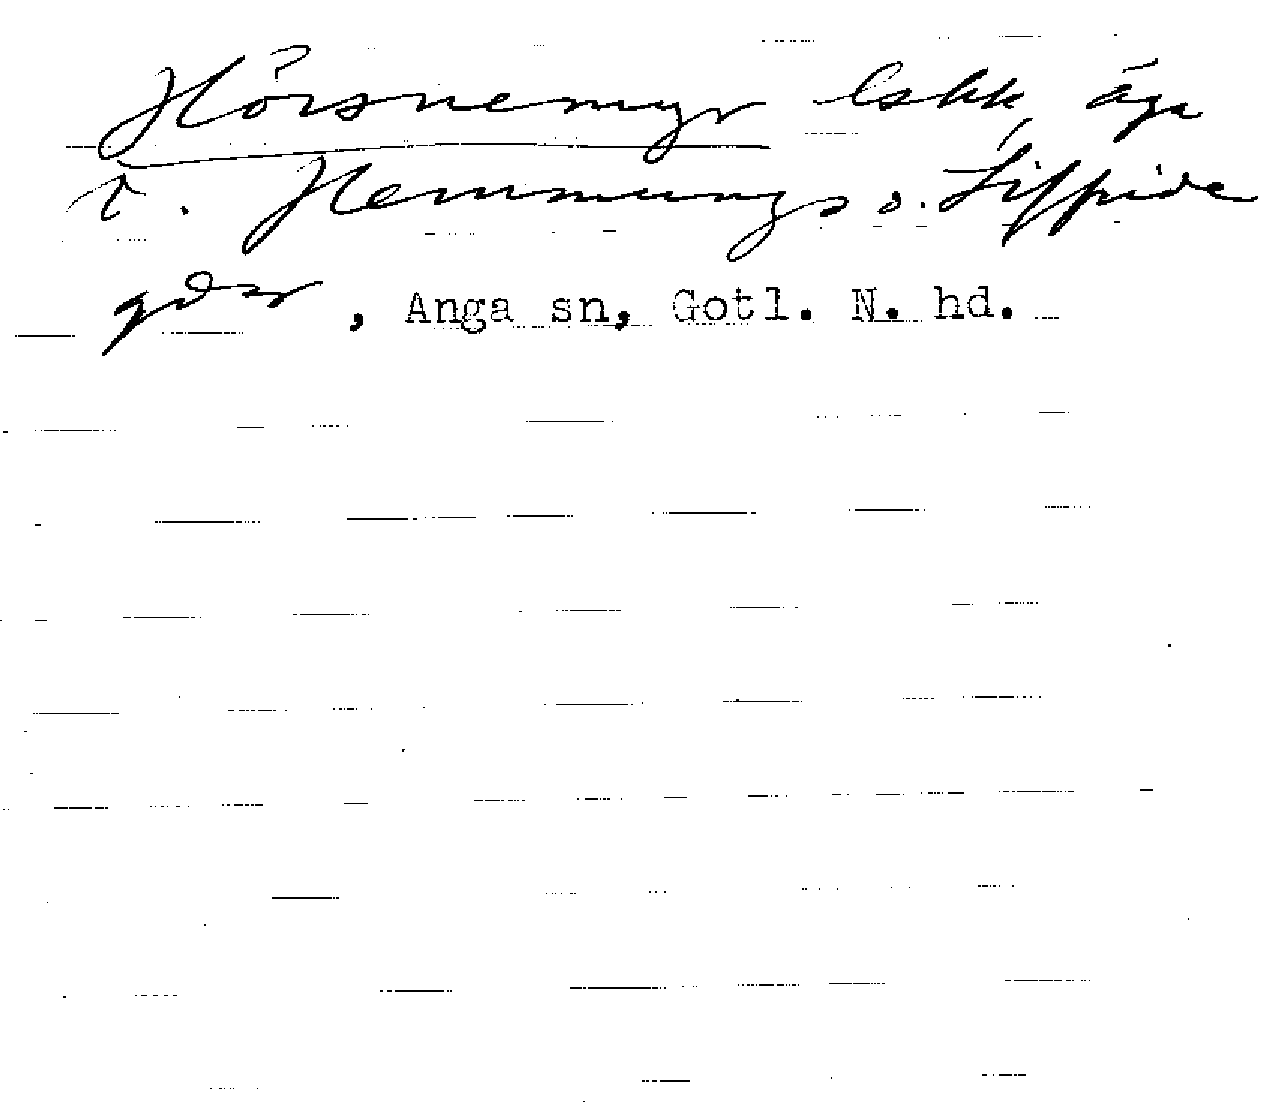 Hörsnemyr lskk äga
t. Hemmungs o. Liffride
gdar, Anga sn, Gotl. N. hd.